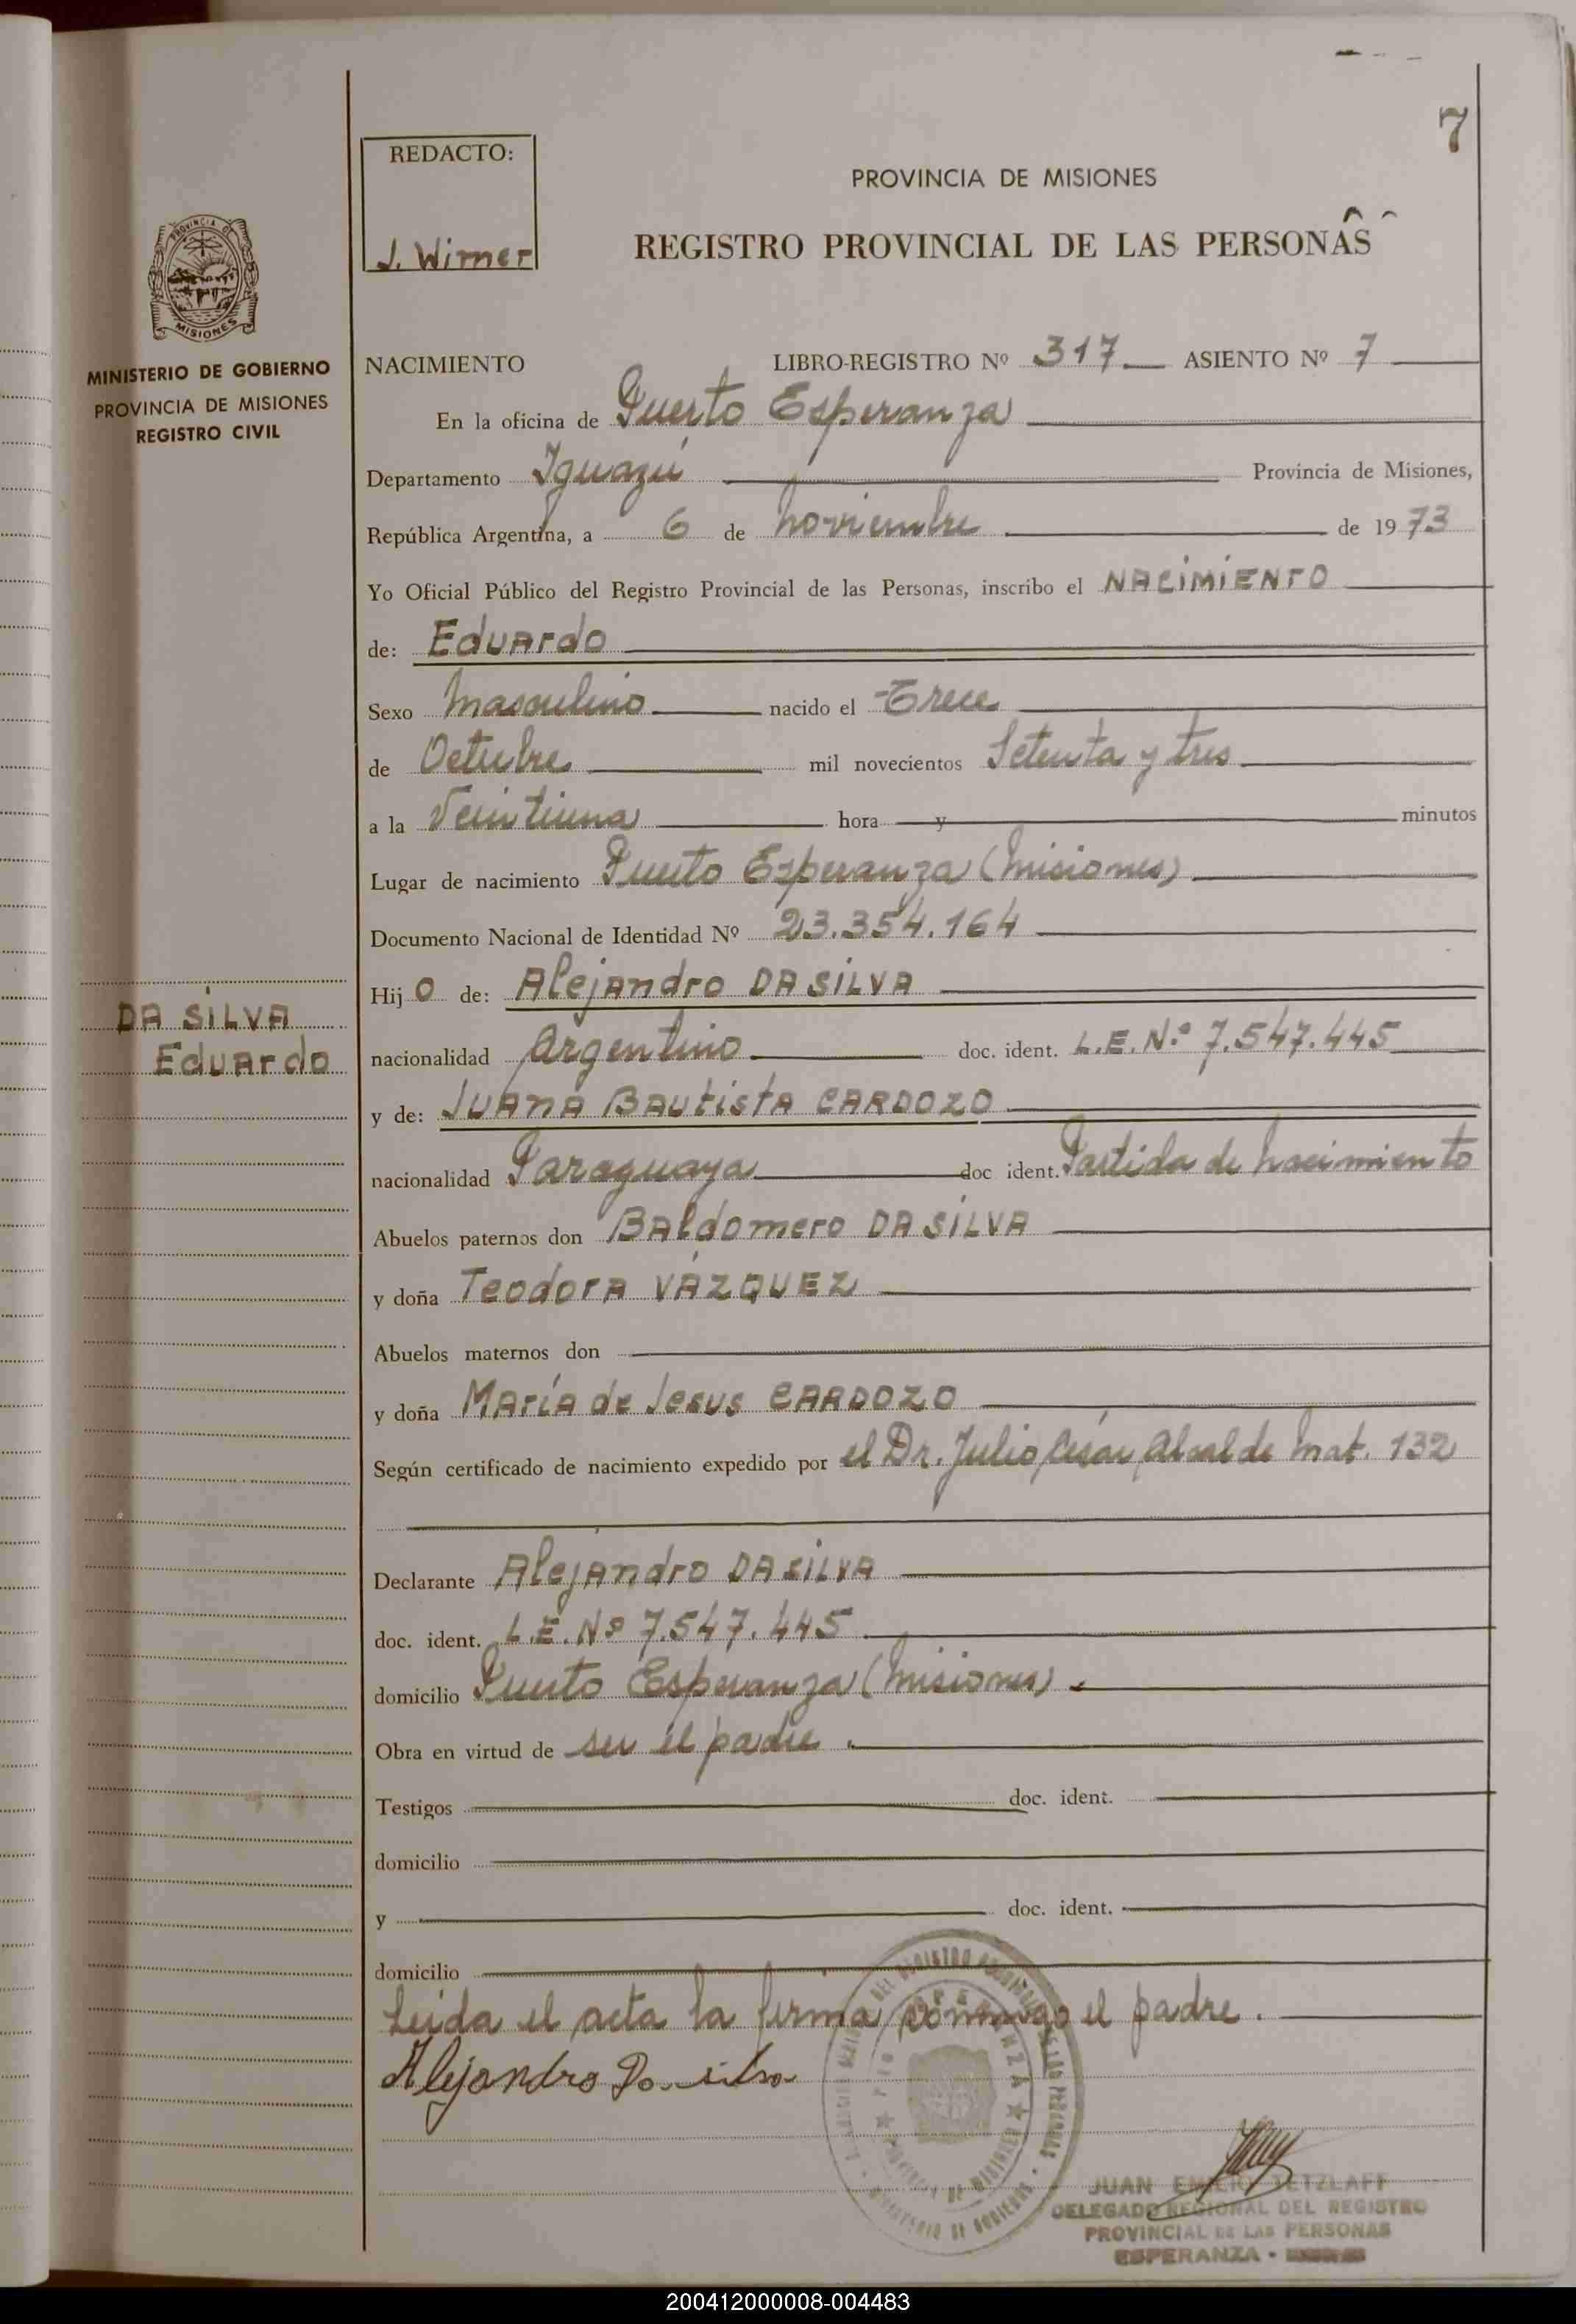 7
REDACTO:
J. Wirner
PROVINCIA DE MISIONES
REGISTRO PROVINCIAL DE LAS PERSONAS
PROVINCIA DE
MISIONES
MINISTERIO DE GOBIERNO
PROVINCIA DE MISIONES
REGISTRO CIVIL
NACIMIENTO LIBRO-REGISTRO Nº 317 ASIENTO Nº 7
En la oficina de Puerto Esperanza
Departamento Iguazú Provincia de Misiones,
República Argentina, a 6 de noviembre de 1973
Yo Oficial Público del Registro Provincial de las Personas, inscribo el NACIMIENTO
de: Eduardo
Sexo masculino nacido el Trece
de Octubre mil novecientos Setenta y tres
a la Veintiuna hora y minutos
Lugar de nacimiento Puerto Esperanza (Misiones)
Documento Nacional de Identidad Nº 23.354.164
DA SILVA
Eduardo
Hijo de: Alejandro DA SILVA
nacionalidad Argentino doc. ident. L.E. Nº 7.547.445
y de: Juana Bautista CARDOZO
nacionalidad Paraguaya doc ident. Partida de nacimiento
Abuelos paternos don Baldomero DA SILVA
y doña Teodora VÁZQUEZ
Abuelos maternos don
y doña María de Jesus CARDOZO
Según certificado de nacimiento expedido por el Dr. Julio César Alcalde Mat. 132
Declarante Alejandro DA SILVA
doc. ident. L.E. Nº 7.547.445
domicilio Puerto Esperanza (Misiones).
Obra en virtud de ser el padre.
Testigos doc. ident.
domicilio
y doc. ident.
domicilio
Leida el acta la firma conmigo el padre.
Alejandro Da silva
JUAN EMILIO TETZLAFF
DELEGADO REGIONAL DEL REGISTRO
PROVINCIAL DE LAS PERSONAS
ESPERANZA -
200412000008-004483